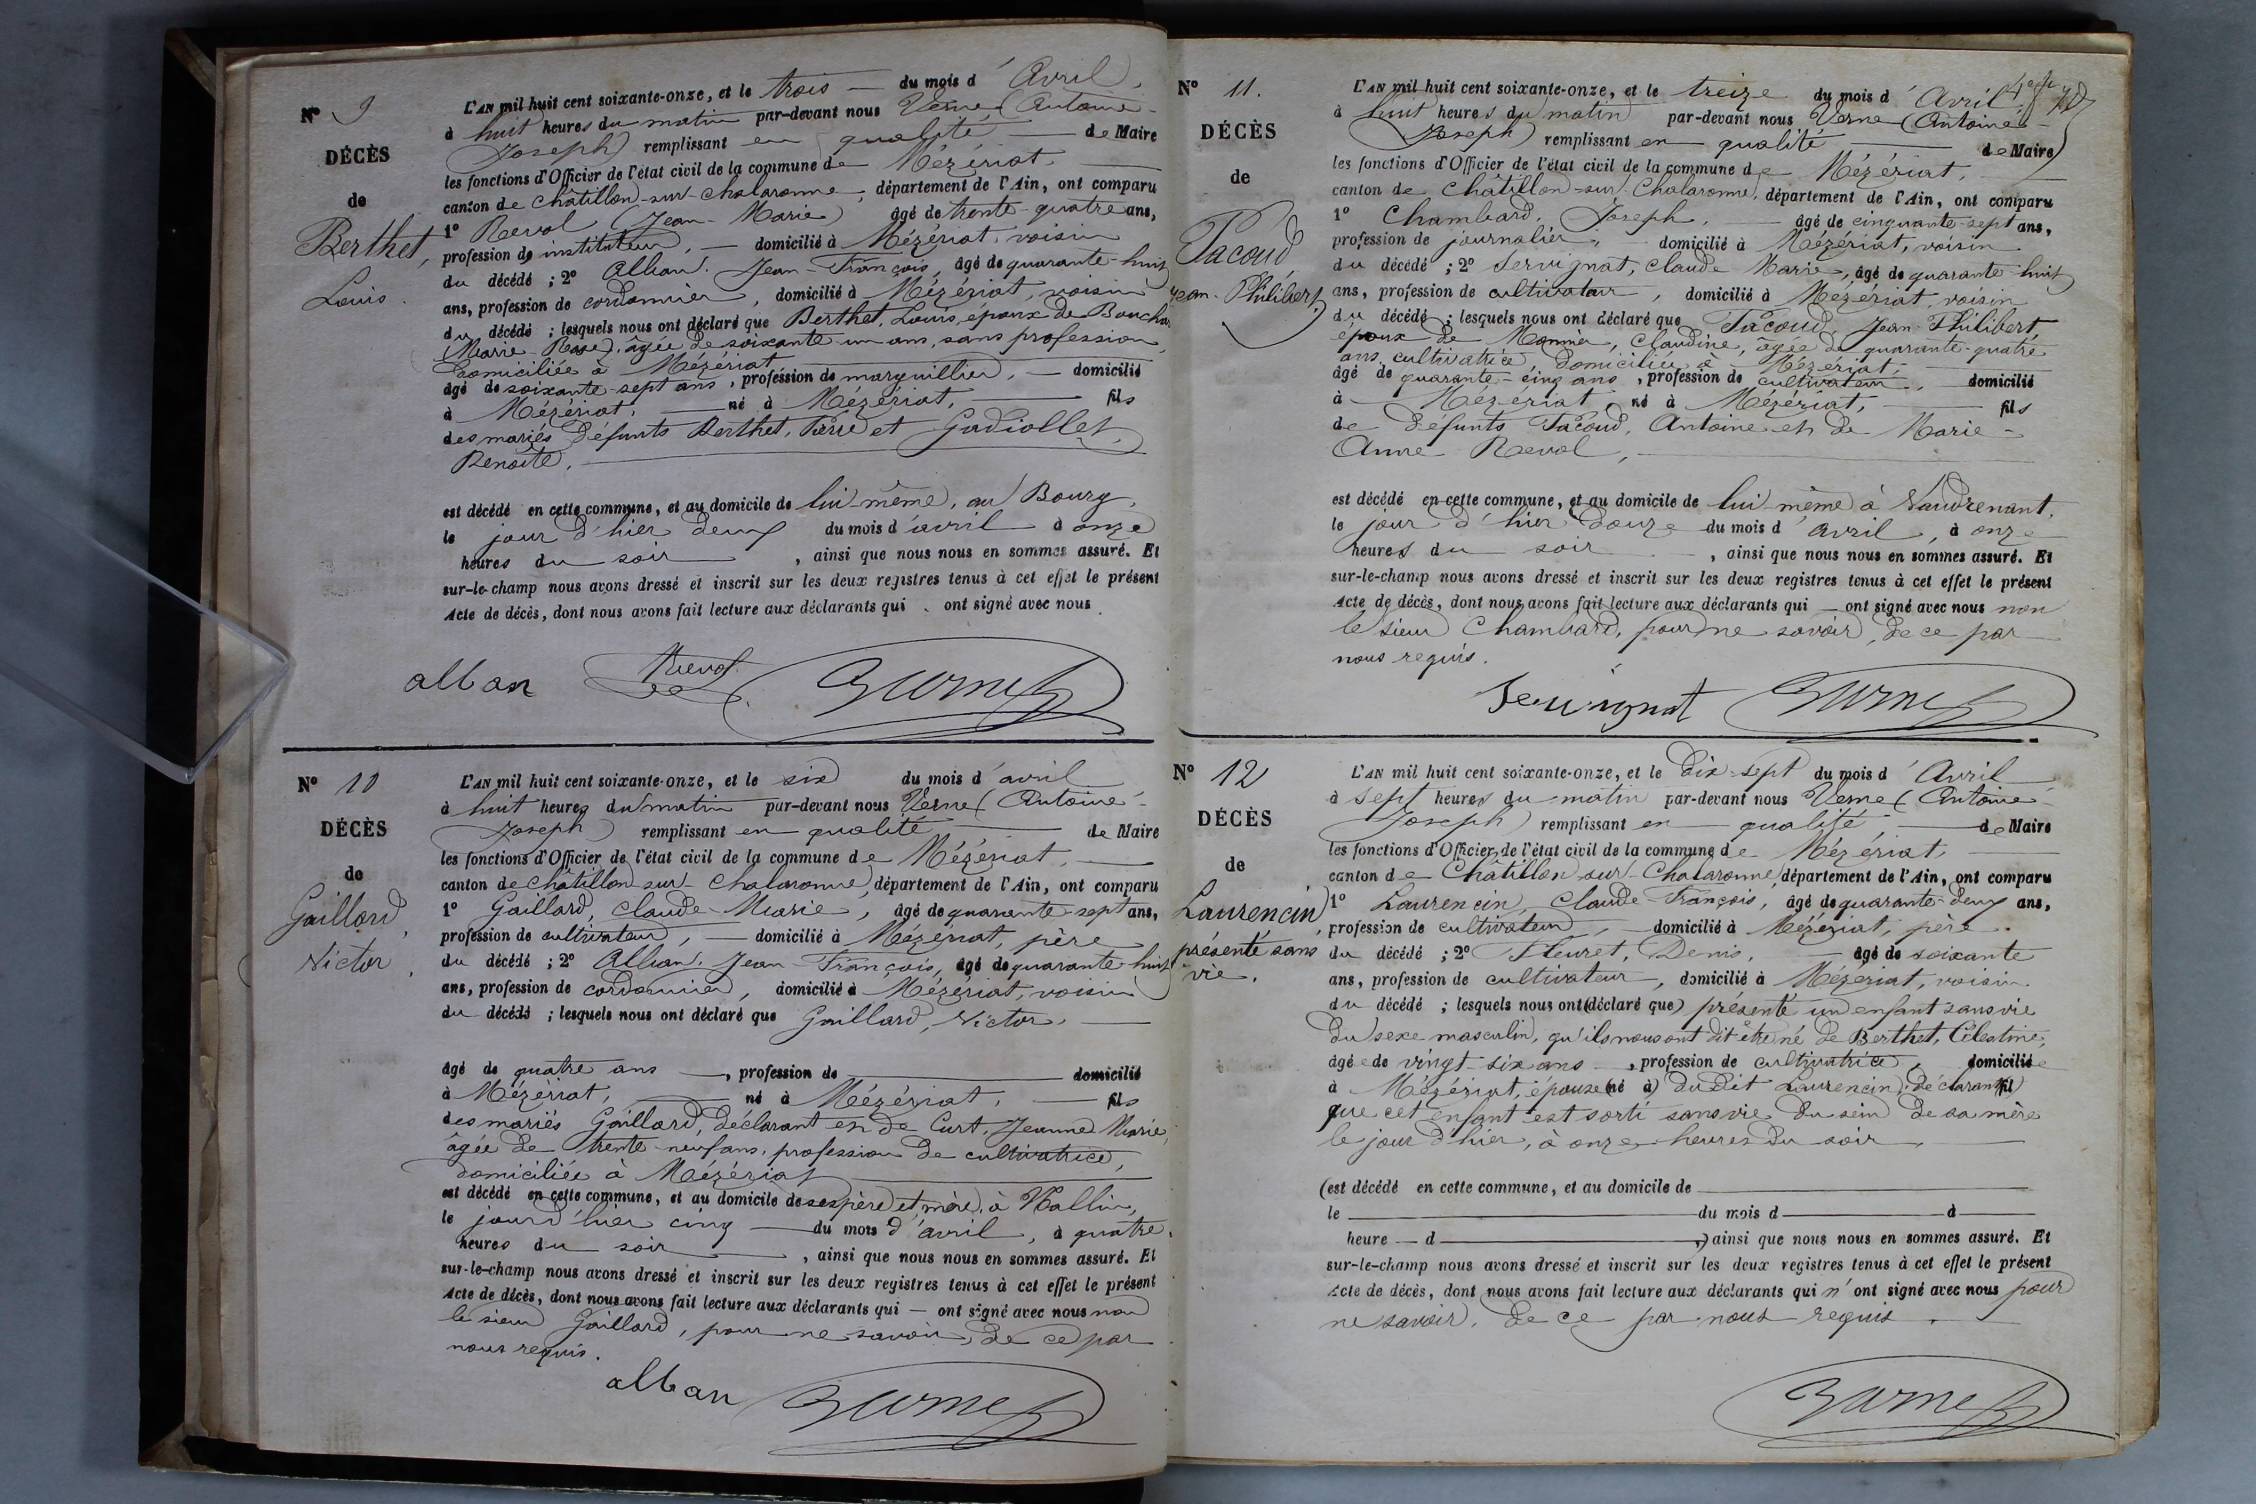 N° 9
DÉCÈS
de
Berthet,
Louis.
L'AN mil huit cent soixante-onze, et le trois du mois d'Avril,
à huit heures du matin par-devant nous Verne (Antoine-
Joseph) remplissant en qualité de Maire
les fonctions d'Officier de l'état civil de la commune de Mézériat,
canton de Châtillon-sur-Chalaronne, département de l'Ain, ont comparu
1° Revol (Jean-Marie) âgé de trente-quatre ans,
profession de instituteur, domicilié à Mézériat, voisin
du décédé ; 2° Alban, Jean-François, âgé de quarante-huit
ans, profession de cordonnier, domicilié à Mézériat, voisin
du décédé ; lesquels nous ont déclaré que Berthet, Louis, époux de
(Marie-Rose), âgée de soixante-un ans, sans profession,
domiciliée à Mézériat
âgé de soixante-sept ans, profession de marguillier, domicilié
à Mézériat, né à Mézériat, fils
des mariés défunts Berthet, Pierre et Gadiollet,
Benoîte,
est décédé en cette commune, et au domicile de lui-même, au Bourg,
le jour d'hier deux du mois d'avril à onze
heures du soir, ainsi que nous nous en sommes assuré. Et
sur-le-champ nous avons dressé et inscrit sur les deux registres tenus à cet effet le présent
Acte de décès, dont nous avons fait lecture aux déclarants qui ont signé avec nous.
alban Revol Verne
N° 10
DÉCÈS
de
Gaillard,
Victor,
L'AN mil huit cent soixante-onze, et le six du mois d'avril
à huit heures du matin par-devant nous Verne (Antoine-
Joseph) remplissant en qualité de Maire
les fonctions d'Officier de l'état civil de la commune de Mézériat,
canton de Châtillon-sur-Chalaronne, département de l'Ain, ont comparu
1° Gaillard, Claude-Marie, âgé de quarante-sept ans,
profession de cultivateur, domicilié à Mézériat, père
du décédé ; 2° Alban, Jean-François, âgé de quarante-huit
ans, profession de cordonnier, domicilié à Mézériat, voisin
du décédé ; lesquels nous ont déclaré que Gaillard, Victor,
âgé de quatre ans, profession de domicilié
à Mézériat, né à Mézériat, fils
des mariés Gaillard, déclarant et de Curt, Jeanne Marie,
âgée de trente-neuf ans, profession de cultivatrice,
domiciliée à Mézériat
est décédé en cette commune, et au domicile de ses père et mère, à
le jour d'hier cinq du mois d'avril, à quatre
heures du soir, ainsi que nous nous en sommes assuré. Et
sur-le-champ nous avons dressé et inscrit sur les deux registres tenus à cet effet le présent
Acte de décès, dont nous avons fait lecture aux déclarants qui ont signé avec nous non
le sieur Gaillard, pour ne savoir, de ce par
nous requis.
alban Verne
N° 11.
DÉCÈS
de
Pacoud
Jean-Philibert,
L'AN mil huit cent soixante-onze, et le treize du mois d'Avril,
à huit heures du matin par-devant nous Verne (Antoine-
Joseph) remplissant en qualité de Maire
les fonctions d'Officier de l'état civil de la commune de Mézériat,
canton de Châtillon-sur-Chalaronne, département de l'Ain, ont comparu
1° Chambard, Joseph, âgé de cinquante-sept ans,
profession de journalier, domicilié à Mézériat, voisin
du décédé ; 2° Servignat, Claude Marie, âgé de quarante-huit
ans, profession de cultivateur, domicilié à Mézériat, voisin
du décédé ; lesquels nous ont déclaré que Pacoud, Jean-Philibert,
époux de Monnier, Claudine, âgée de quarante-quatre
ans, cultivatrice, domiciliée à Mézériat,
âgé de quarante-cinq ans, profession de cultivateur, domicilié
à Mézériat, né à Mézériat, fils
de défunts Pacoud, Antoine et de Marie-
Anne Revol,
est décédé en cette commune, et au domicile de lui-même à Vaudrenant,
le jour d'hier douze du mois d'avril, à onze
heures du soir, ainsi que nous nous en sommes assuré. Et
sur-le-champ nous avons dressé et inscrit sur les deux registres tenus à cet effet le présent
Acte de décès, dont nous avons fait lecture aux déclarants qui ont signé avec nous non
le sieur Chambard, pour ne savoir, de ce par
nous requis.
Servignat Verne
N° 12
DÉCÈS
de
Laurencin,
présenté sans
vie.
L'AN mil huit cent soixante-onze, et le dix-sept du mois d'Avril
à sept heures du matin par-devant nous Verne (Antoine-
Joseph) remplissant en qualité de Maire
les fonctions d'Officier de l'état civil de la commune de Mézériat,
canton de Châtillon-sur-Chalaronne, département de l'Ain, ont comparu
1° Laurencin, Claude-François, âgé de quarante-deux ans,
profession de cultivateur, domicilié à Mézériat, père
du décédé ; 2° Fleuret, Denis, âgé de soixante
ans, profession de cultivateur, domicilié à Mézériat, voisin
du décédé ; lesquels nous ont (déclaré que) présenté un enfant sans vie
du sexe masculin, qu'ils nous ont dit être né de Berthet, Célestine,
âgée de vingt-six ans, profession de cultivatrice, domiciliée
à Mézériat, épouse (né à) dudit Laurencin, déclarant (fil)
que cet enfant est sorti sans vie du sein de sa mère
le jour d'hier, à onze heures du soir,
(est décédé en cette commune, et au domicile de
le du mois d à
heure d ,) ainsi que nous nous en sommes assuré. Et
sur-le-champ nous avons dressé et inscrit sur les deux registres tenus à cet effet le présent
Acte de décès, dont nous avons fait lecture aux déclarants qui n'ont signé avec nous pour
ne savoir, de ce par nous requis.
Verne